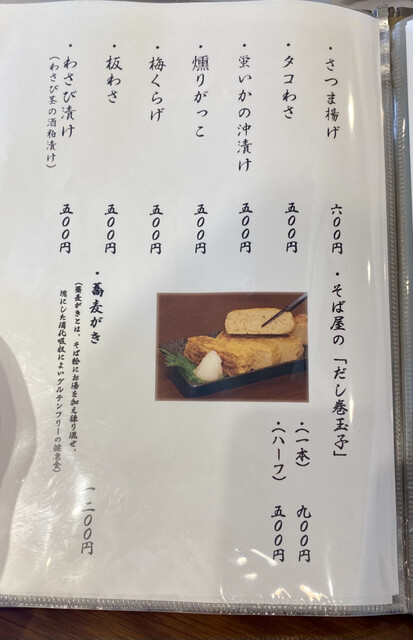 ・さつま揚げ 六〇〇円
・タコわさ 五〇〇円
・蛍いかの沖漬け 五〇〇円
・燻りがっこ 五〇〇円
・梅くらげ 五〇〇円
・板わさ 五〇〇円
・わさび漬け 五〇〇円
(わさび茎の酒粕漬け)
・そば屋の「だし巻玉子」
・(一本) 九〇〇円
・(ハーフ) 五〇〇円
・蕎麦がき 一二〇〇円
(蕎麦がきとは、そば粉にお湯を加え練り混ぜ、
塊にした消化吸収によいグルテンフリーの健康食)